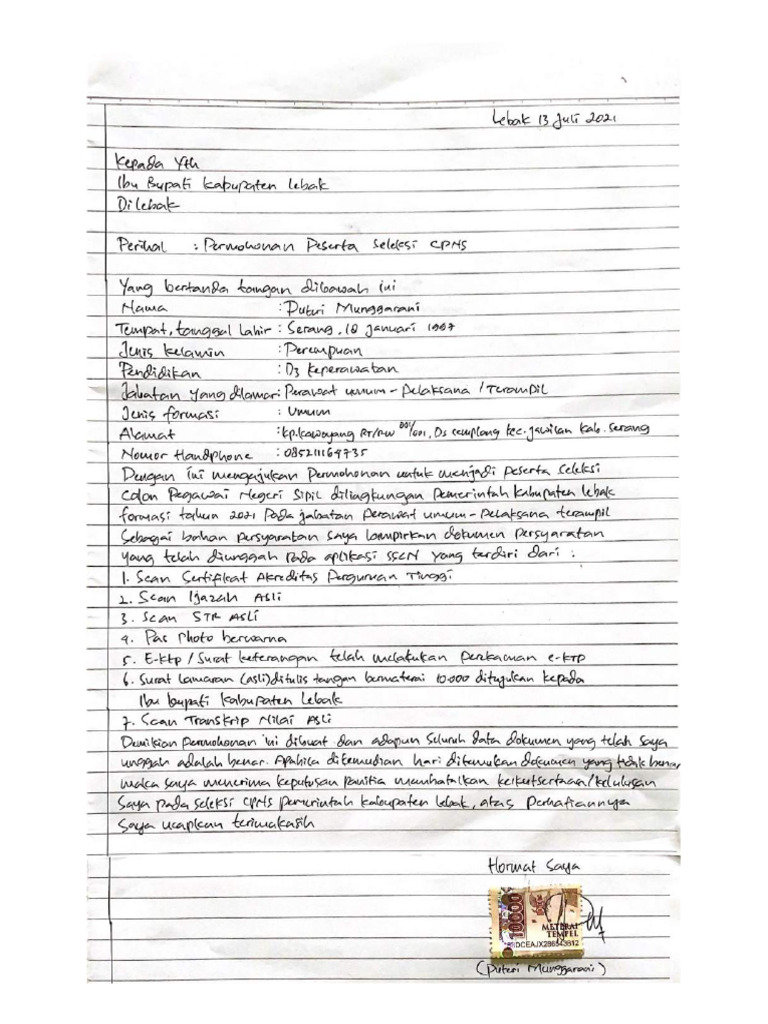 Lebak 13 Juli 2021
Kepada Yth
Ibu Bupati Kabupaten Lebak
Di Lebak
Perihal : Permohonan Peserta Seleksi CPNS
Yang bertanda tangan dibawah ini
Nama : Puteri Munggarani
Tempat, tanggal lahir : Serang, 18 Januari 1997
Jenis kelamin : Perempuan
Pendidikan : D3 Keperawatan
Jabatan yang dilamar : Perawat umum - Pelaksana / Terampil
Jenis formasi : Umum
Alamat : kp. kawoyang RT/RW 001/001, Ds cemplang kec. jawilan kab. serang
Nomor Handphone : 085211164735
Dengan ini mengajukan permohonan untuk menjadi peserta seleksi
Calon Pegawai Negeri Sipil dilingkungan Pemerintah Kabupaten Lebak
formasi tahun 2021 pada jabatan perawat umum - pelaksana terampil
Sebagai bahan persyaratan saya lampirkan dokumen persyaratan
yang telah diunggah pada aplikasi SSCN yang terdiri dari :
1. Scan Sertifikat Akreditas Perguruan Tinggi
2. Scan Ijazah Asli
3. Scan STR Asli
4. Pas Photo berwarna
5. E-ktp / Surat keterangan telah melakukan perekaman e-KTP
6. Surat Lamaran (asli) ditulis tangan bermaterai 10.000 ditujukan kepada
Ibu bupati kabupaten Lebak
7. Scan Transkrip Nilai Asli
Demikian permohonan ini dibuat dan adapun seluruh data dokumen yang telah saya
unggah adalah benar. Apabila ditemudian hari ditemukan dokumen yang tidak benar,
maka saya menerima keputusan panitia membatalkan keikutsertaan/kelulusan
Saya pada seleksi CPNS pemerintah kabupaten Lebak, atas perhatiannya
Saya ucapkan terimakasih
Hormat Saya
10000
METERAI
TEMPEL
(Puteri Munggarani)